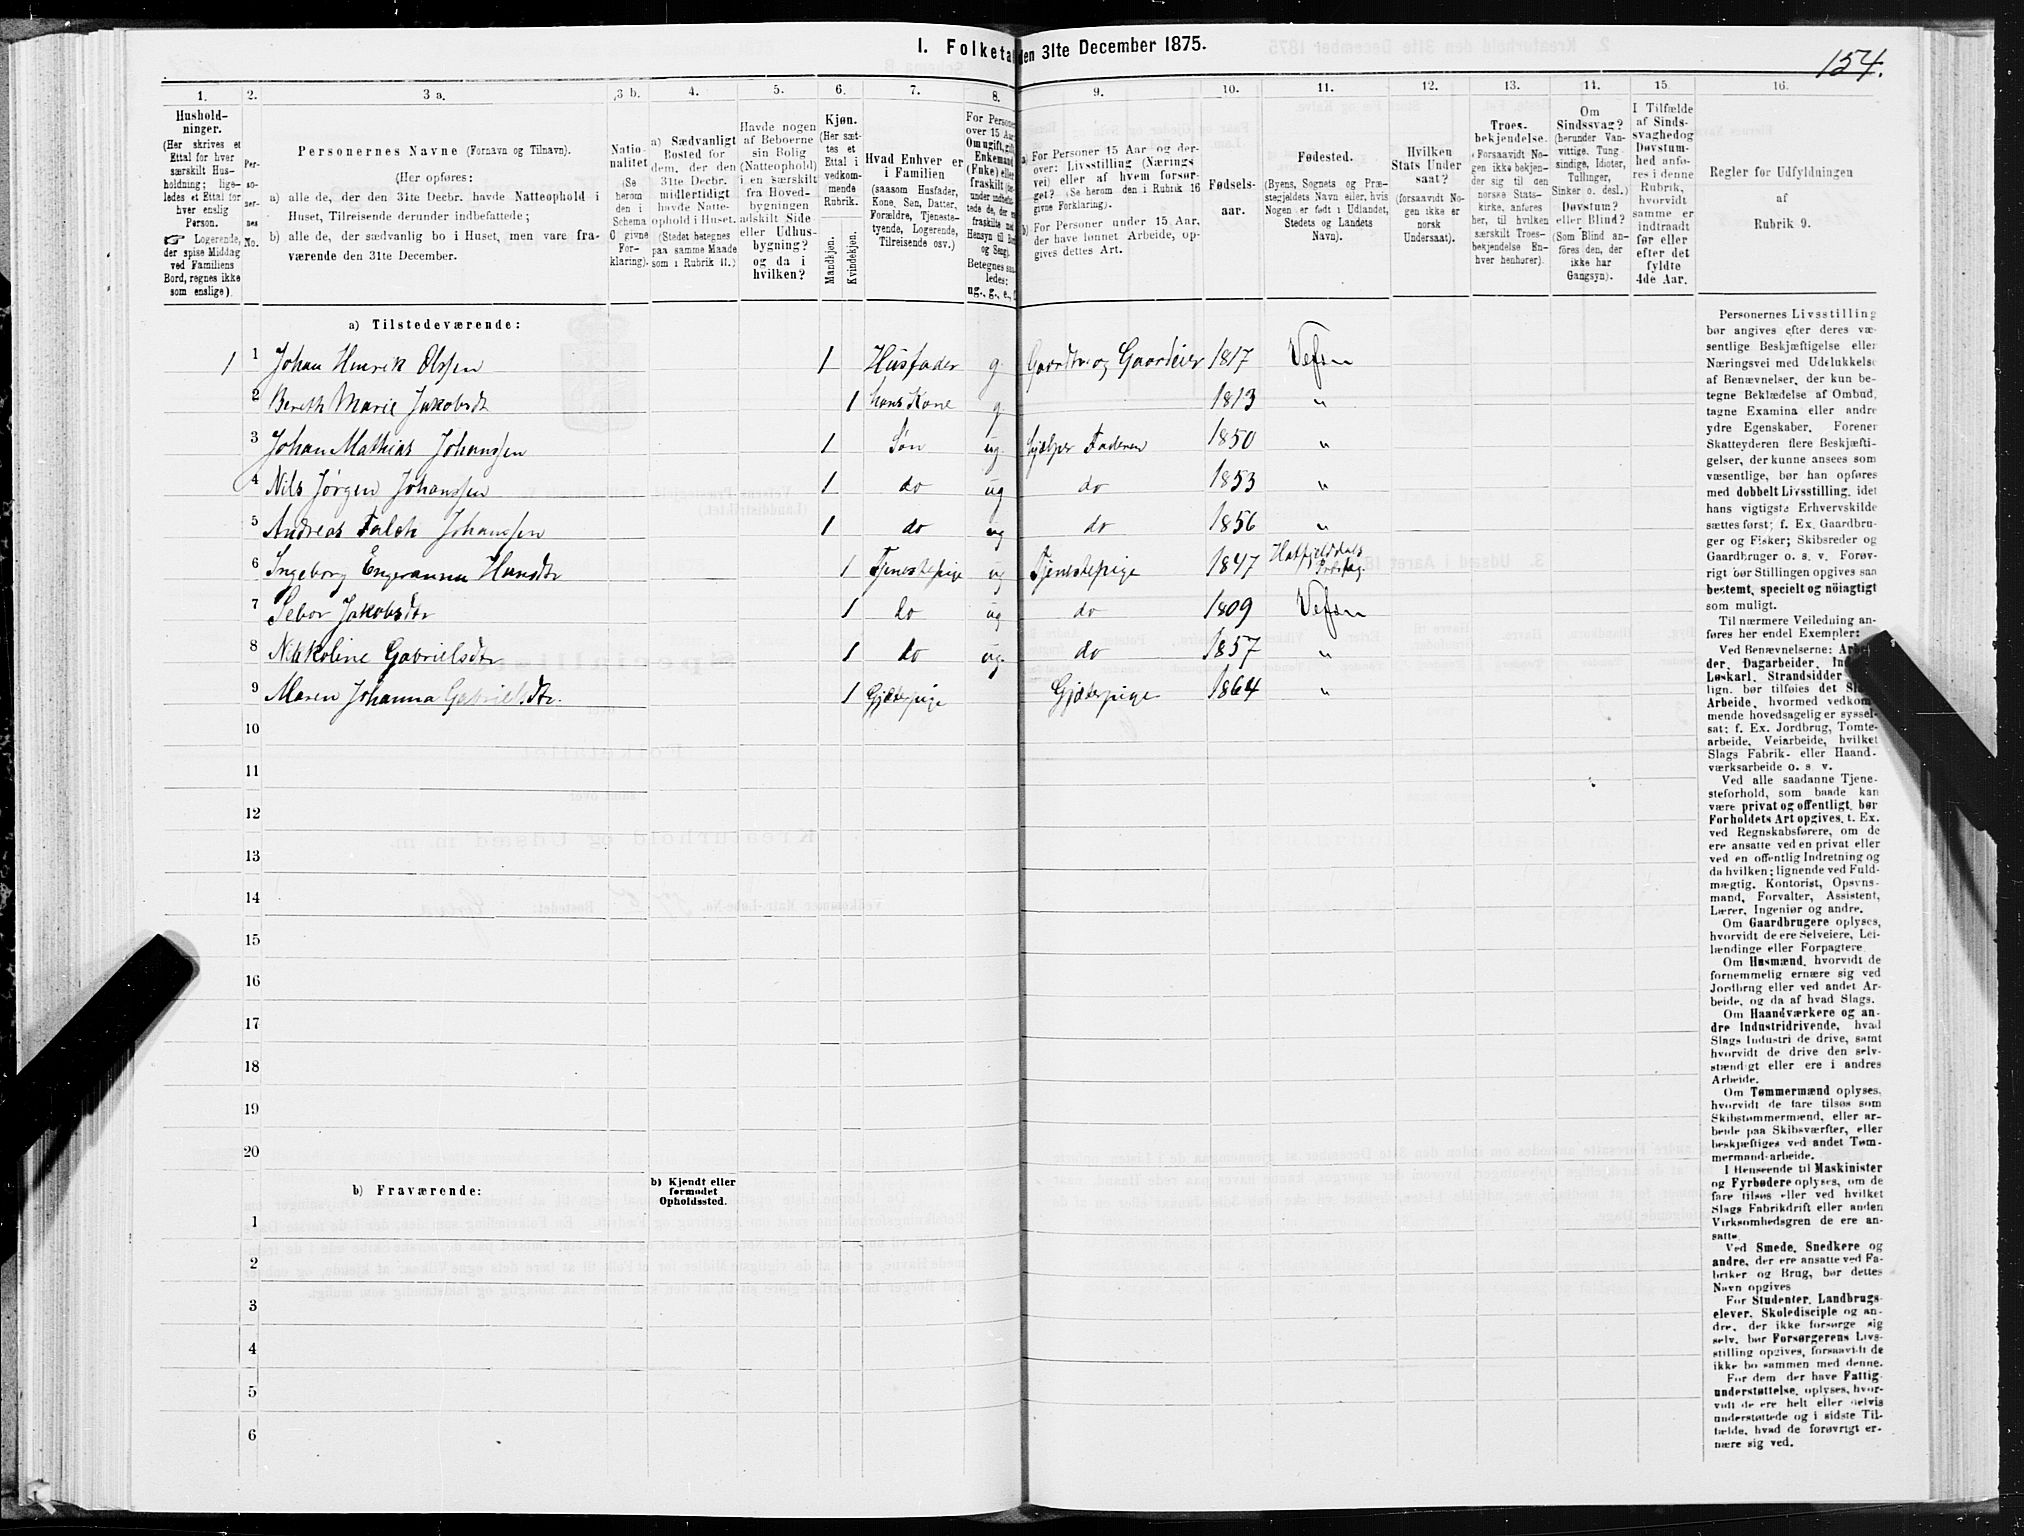 I. Folketal den 31te December 1875.
154.
1.
2.
3 a.
3 b.
4.
5.
6.
7.
8.
9.
10.
11.
12.
13.
14.
15.
16.
Hushold-
ninger.
(Her skrives et
Ettal for hver
særskilt Hus-
holdning; lige-
ledes et Ettal for
hver enslig
Person.
☞ Logerende,
der spise Middag
ved Familiens
Bord, regnes ikke
som enslige).
Per-
so-
ner-
nes
No.
Personernes Navne (Fornavn og Tilnavn).
(Her opføres:
a) alle de, der den 31te Decbr. havde Natteophold i
Huset, Tilreisende derunder indbefattede;
b) alle de, der sædvanlig bo i Huset, men vare fra-
værende den 31te December.
Natio-
nalitet
(Se
herom
den i
Schema
O givne
For-
klaring).
a) Sædvanligt
Bosted for
dem, der den
31te Decbr.
midlertidigt
havde Natte-
ophold i Huset.
(Stedet betegnes
paa samme Maade
som i Rubrik 11.)
Havde nogen
af Beboerne
sin Bolig
(Natteophold)
i en særskilt
fra Hoved-
bygningen
adskilt Side
eller Udhus-
bygning?
og da i
hvilken?
Kjøn.
(Her sæt-
tes et
Ettal i
vedkom-
mende
Rubrik.
Mandkjøn.
Kvindekjøn.
Hvad Enhver er
i Familien
(saasom Husfader,
Kone, Søn, Datter,
Forældre, Tjeneste-
tyende, Logerende,
Tilreisende osv.)
For Personer
over 15 Aar:
Om ugift, gift,
Enkemand
(Enke) eller
fraskilt
Betegnes saa-
ledes:
ug., g., e., f.
a) For Personer 15 Aar og der-
over: Livsstilling (Nærings
vei) eller af hvem forsør-
get? (Se herom den i Rubrik 16
givne Forklaring).
b) For Personer under 15 Aar,
der have lønnet Arbeide, op-
gives dettes Art.
Fødsels-
aar.
Fødested.
(Byens, Sognets og Præ-
stegjeldets Navn eller, hvis
Nogen er født i Udlandet,
Stedets og Landets
Navn).
Hvilken
Stats Under
saat?
(forsaavidt No-
gen ikke er
norsk
Undersaat).
Troes-
bekjendelse.
(Forsaavidt No-
gen ikke bekjen-
der sig til den
norske Stats-
kirke, anføres
her, til hvilken
særskilt Troes-
bekjendelse En-
hver henhører).
Om
Sindssvag?
(herunder Van-
vittige, Tung-
sindige, Idioter,
Tullinger,
Sinker o. desl.)
Døvstum?
eller Blind?
(Som Blind an-
føres den, der
ikke har
Gangsyn).
I Tilfælde
af Sinds-
svaghed og
Døvstum-
hed anfø-
res i denne
Rubrik,
hvorvidt
samme er
indtraadt
før eller
efter det
fyldte
4de Aar.
Regler for Udfyldningen
af
Rubrik 9.
a) Tilstedeværende:
1 1 Johan Henrik Olssen 1 Husfader g. Gaardbr og Gaardeier 1817 Vefsn
2 Bereth Marie Jakobsdt 1 hans Kone g 1813 "
3 Johan Mathias Johanssen 1 Søn ug. hjelper Faderen 1850 "
4 Nils Jørgen Johanssen 1 do ug do 1853 "
5 Andreas Falch Johanssen 1 do ug do 1856 "
6 Ingeborg Engeranna Hansdtr 1 Tjenestepige ug Tjenestepige 1847 Hatfjelddals Præsteg
7 Jakobsdtr 1 do ug do 1809 Vefsn
8 Nikoline Gabrielsdtr 1 do ug. do 1857 "
9 Maren Johanna Gabrielsdtr. 1 Gjæterpige Gjæterpige 1864 "
10
11
12
13
14
15
16
17
18
19
20
b) Fraværende:
b) Kjendt eller
formodet
Opholdssted.
1
2
3
4
5
6
Personernes Livsstilling
bør angives efter deres væ-
sentlige Beskjæftigelse eller
Næringsvei med Udelukkelse
af Benævnelser, der kun be-
tegne Beklædelse af Ombud,
tagne Examina eller andre
ydre Egenskaber. Forener
Skatteyderen flere Beskjæfti-
gelser, der kunne ansees som
væsentlige, bør han opføres
med dobbelt Livsstilling, idet
hans vigtigste Erhvervskilde
sættes først; f. Ex. Gaardbru-
ger og Fisker; Skibsreder og
Gaardbruger o. s. v. Forøv-
rigt bør Stillingen opgives saa
bestemt, specielt og nöiagtigt
som muligt.
Til nærmere Veiledning an-
føres her endel Exempler:
Ved Benævnelserne: Arbei-
der, Dagarbeider,
Løskarl, Strandsidder
lign. bør tilføies det Slags
Arbeide, hvormed vedkom-
mende hovedsagelig er syssel-
sat; f. Ex. Jordbrug, Tomte-
arbeide, Veiarbeide, hvilket
Slags Fabrik- eller Haand-
værksarbeide o. s. v.
Ved alle saadanne Tjene-
steforhold, som baade kan
være privat og offentligt, bør
Forholdets Art opgives, t. Ex.
ved Regnskabsførere, om de
ere ansatte ved en privat eller
ved en offentlig Indretning og
da hvilken; lignende ved Fuld-
mægtig, Kontorist, Opsyns-
mand, Forvalter, Assistent,
Lærer, Ingeniør og andre.
Om Gaardbrugere oplyses,
hvorvidt de ere Selveiere, Lei-
lændinge eller Forpagtere.
Om Husmænd, hvorvidt de
fornemmelig ernære sig ved
Jordbrug eller ved andet Ar-
beide, og da af hvad Slags.
Om Haandværkere og an-
dre Industridrivende, hvad
Slags Industri de drive, samt
hvorvidt de drive den selv-
stændigt eller ere i andres
Arbeide.
Om Tømmermænd oplyses,
hvorvidt de fare tilsøs som
Skibstømmermænd, eller ar-
beide paa Skibsværfter, eller
beskjæftiges ved andet Tøm-
mermand-arbeide.
I Henseende til Maskinister
og Fyrbødere oplyses, om de
fare tilsøs eller ved hvilket
Slags Fabrikdrift eller anden
Virksomhedsgren de ere an-
satte.
Ved Smede, Snedkere og
andre, der ere ansatte ved Fa-
briker og Brug, bør dettes
Navn opgives
For Studenter, Landbrugs-
elever, Skoledisciple og an-
dre, der ikke forsørge sig
selv, bør Forsørgerens Livs-
stilling opgives, forsaavidt de
ikke bo sammen med denne.
For dem der have Fattig-
understøttelse, oplyses, hvor-
vidt de ere helt eller delvis
understøttede og i sidste Til-
fælde, hvad de forøvrigt er-
nære sig ved.